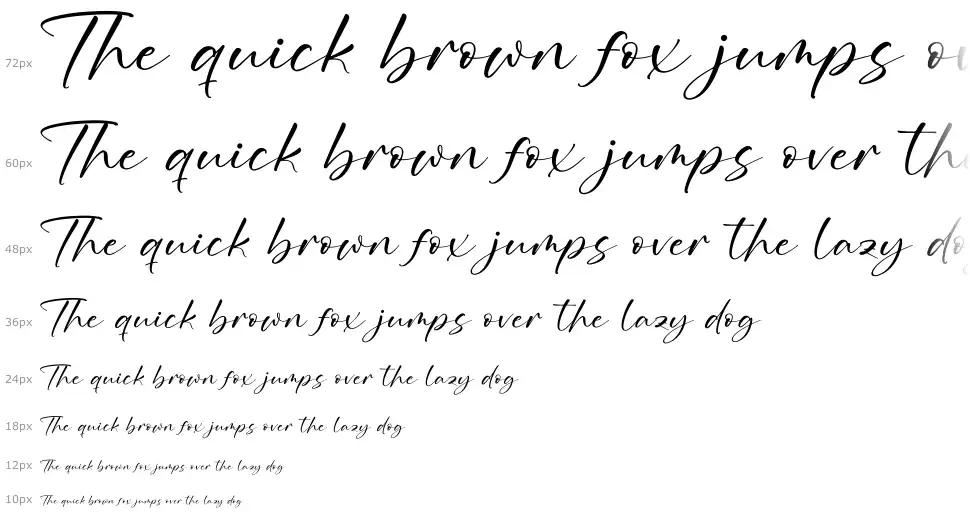 72px The quick brown fox jumps ov
60px The quick brown fox jumps over th
48px The quick brown fox jumps over the lazy do
36px The quick brown fox jumps over the lazy dog
24px The quick brown fox jumps over the lazy dog
18px The quick brown fox jumps over the lazy dog
12px The quick brown fox jumps over the lazy dog
10px The quick brown fox jumps over the lazy dog